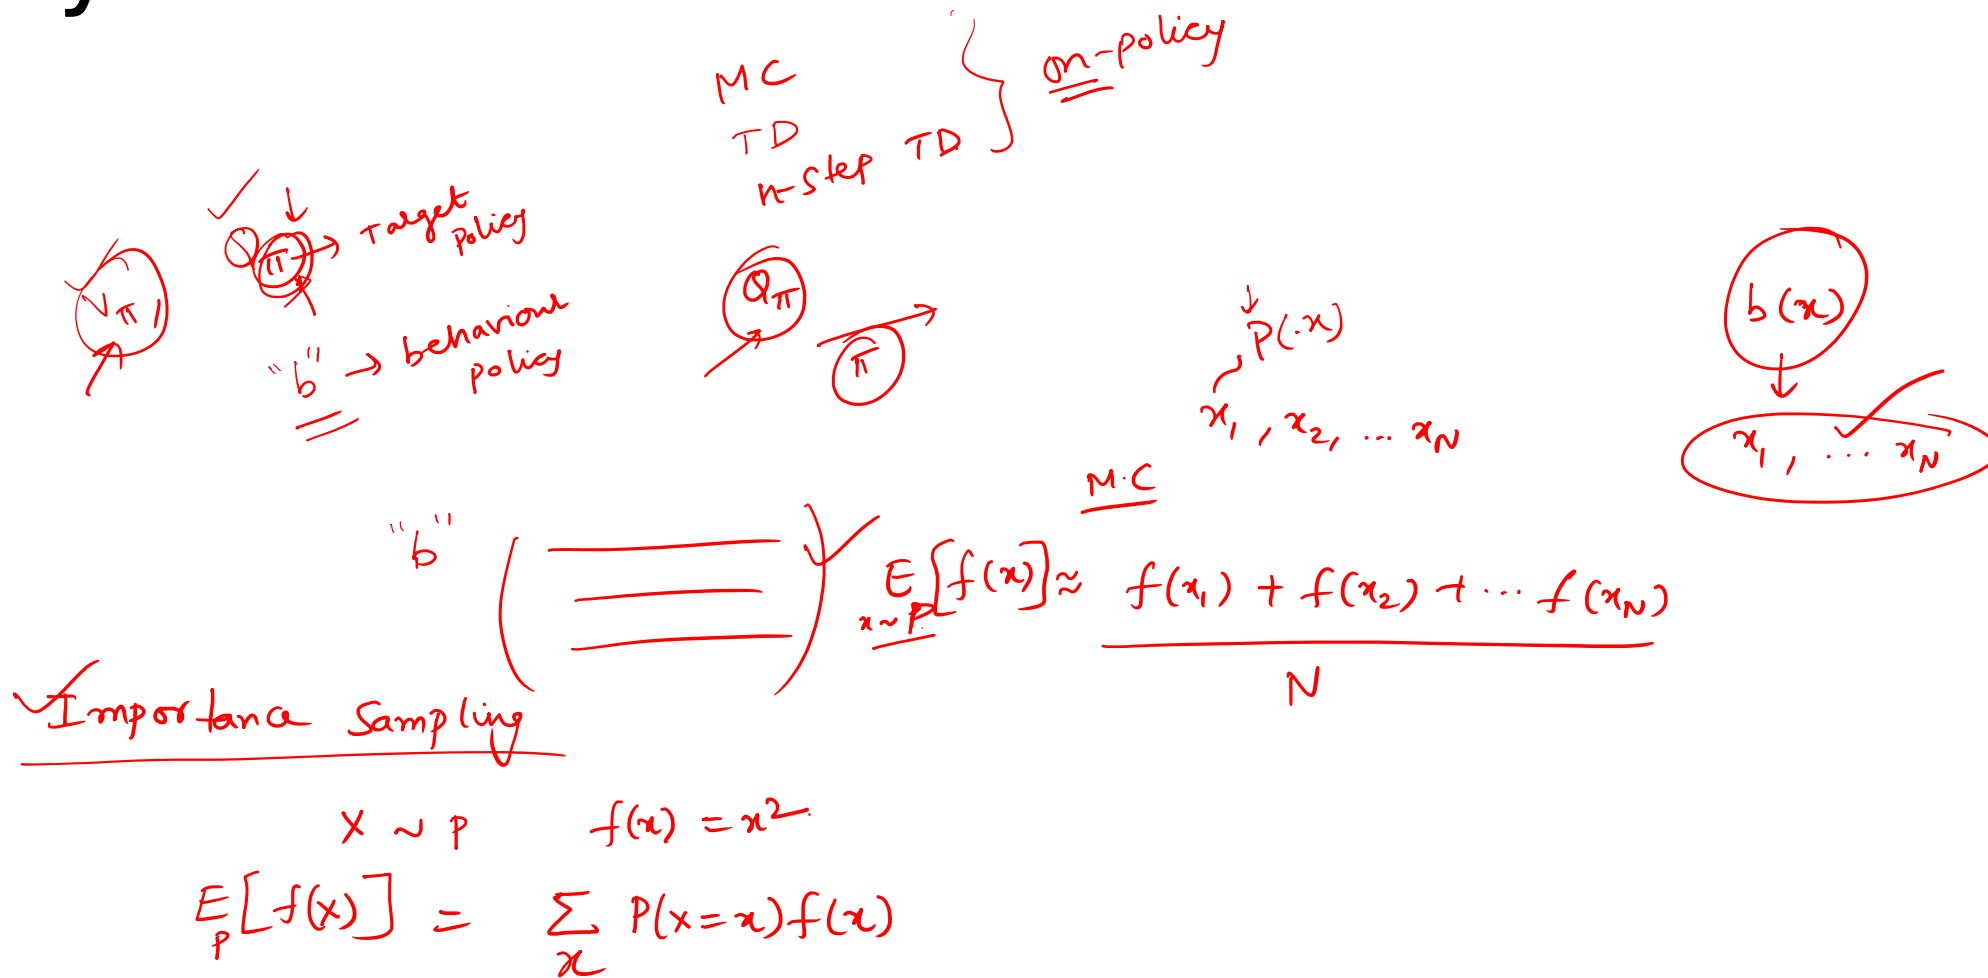 MC
TD
n-step TD
on-policy
Vπ
π → Target policy
"b" → behaviour policy
Qπ
π
P(x)
x₁, x₂, ... x_N
b(x)
x₁, ... x_N
M.C
"b"
E x~P [f(x)] ≈ f(x₁) + f(x₂) + ... f(x_N)
N
Importance Sampling
X ~ P f(x) = x²
E_P [f(x)] = Σ_x P(X=x) f(x)